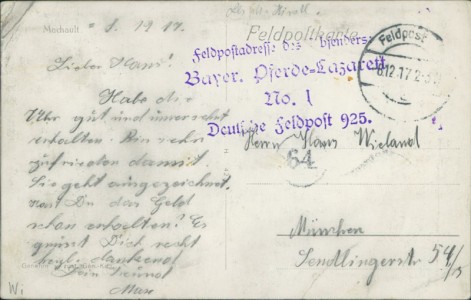 Machault
8. 12. 17.
Feldpostkarte
Feldpostadresse des Absenders:
Bayer. Pferde-Lazarett
No. 1
Deutsche Feldpost 925.
Feldpost
8.12.17.2-3
Lieber Hans!
Habe die
Uhr gut und unversehrt
erhalten. Bin sehr
zufrieden damit.
Sie geht ausgezeichnet.
Hast Du das Geld
schon erhalten? Es
grüsst Dich recht
herzl. dankend
Dein Freund
Max
Herrn Hans Wieland
64
München
Sendlingerstr 54/
Wi